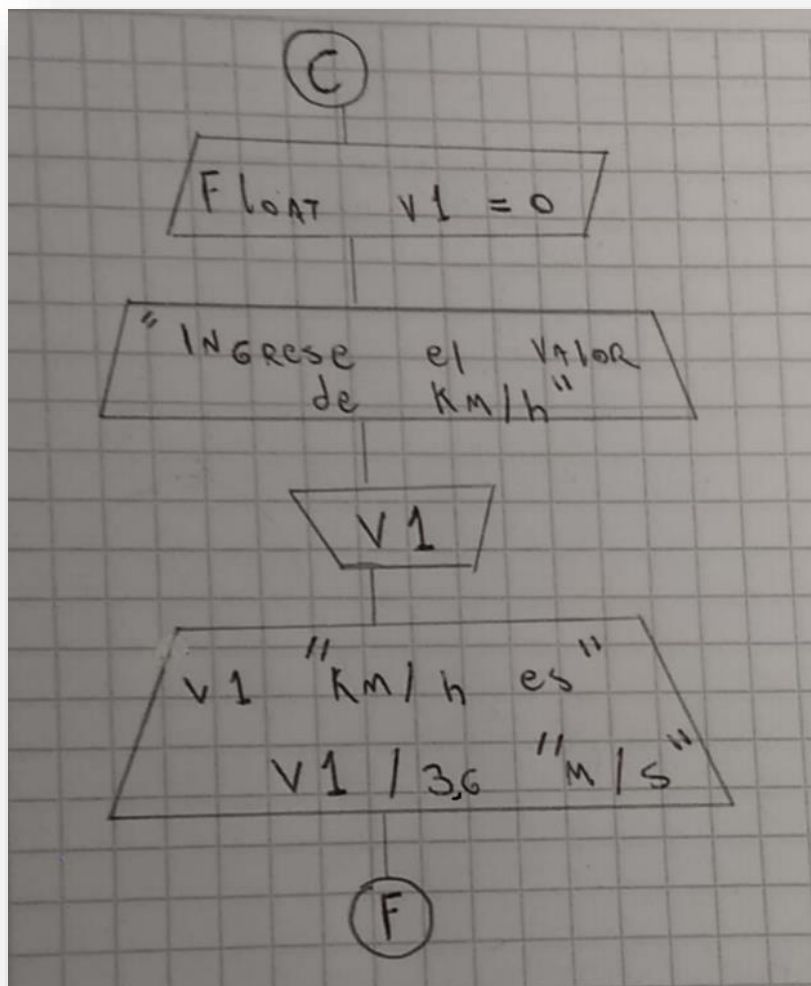 C
FLOAT V1 = 0
"INGRese el VAlOR
de KM/h"
V1
V1 "KM/h es"
V1 / 3,6 "M/S"
F